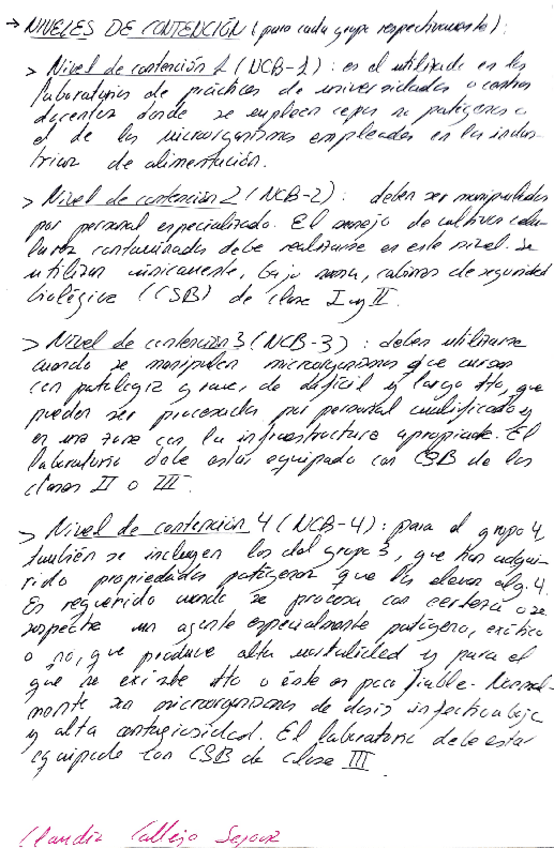 → NIVELES DE CONTENCIÓN (para cada grupo respectivamente):
> Nivel de contención 1 (NCB-1): es el utilizado en los
laboratorios de prácticas de universidades o centros
docentes donde se emplean cepas no patógenas o
el de los microorganismos empleados en las indus-
trias de alimentación.
> Nivel de contención 2 (NCB-2): deben ser manipulados
por personal especializado. El manejo de cultivos celu-
lares contaminados debe realizarse en este nivel. Se
utilizan únicamente, bajo norma, cabinas de seguridad
biológica (CSB) de clase I y II.
> Nivel de contención 3 (NCB-3): deben utilizarse
cuando se manipulen microorganismos que cursan
con patología grave, de difícil y largo tto, que
pueden ser procesados por personal cualificado y
en una zona con la infraestructura apropiada. El
laboratorio debe estar equipado con CSB de las
clases II o III.
> Nivel de contención 4 (NCB-4): para el grupo 4,
también se incluyen los del grupo 3, que han adqui-
rido propiedades patógenas que los elevan al g.4.
Es requerido cuando se procesa con certeza o se
sospecha un agente especialmente patógeno, exótico
o no, que produce alta mortalidad y para el
que no existe tto o éste es poco fiable. Normal-
mente son microorganismos de dosis infectiva baja
y alta contagiosidad. El laboratorio debe estar
equipado con CSB de clase III
Claudia Callejo